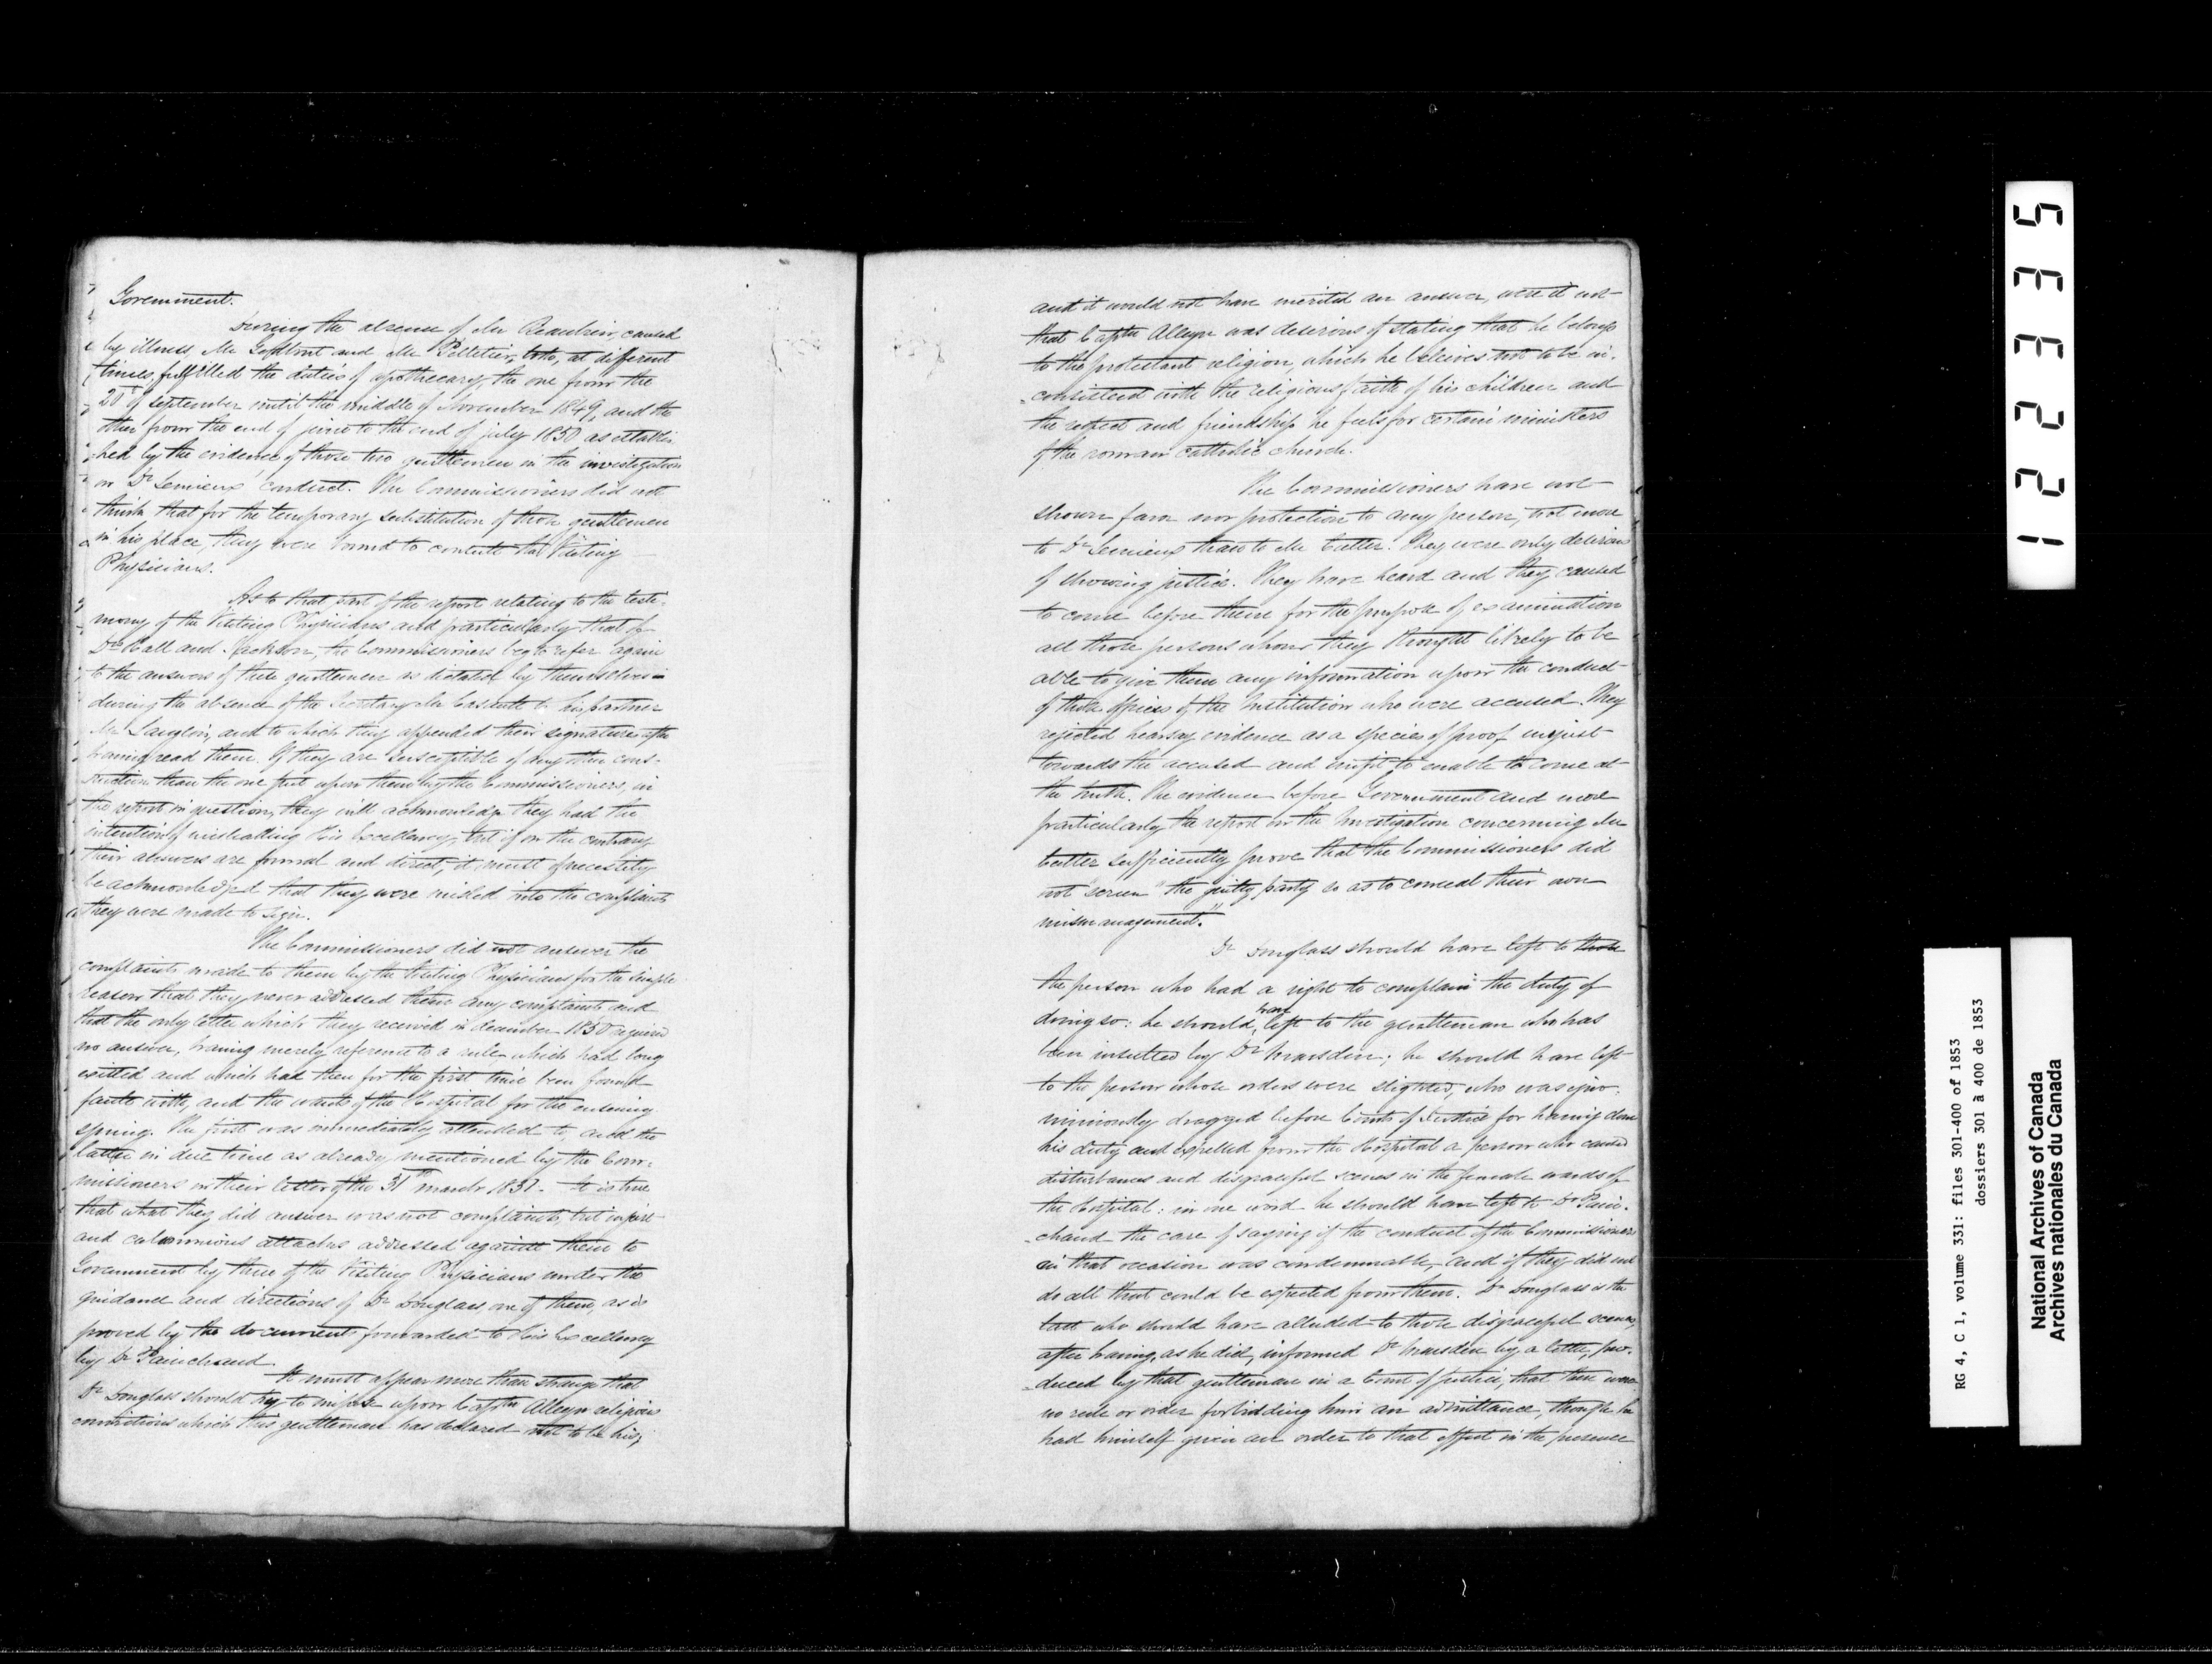 Government.
During the absence of Mr Beaubien, caused
by illness, Mr and Mr Pelletier, both, at different
times, fulfilled the duties of apothecary, the one from the
20th of september until the middle of November 1849, and the
other from the end of june to the end of july 1850 as establis-
hed by the evidence of those two gentlemen in the investigation
on Dr Lemieux' conduct. The Commissioners did not
think that for the temporary substitution of those gentlemen
in his place, they were bound to consult the Visiting
Physicians.
As to that part of the report relating to the testi-
mony of the Visiting Physicians and particularly that of
Drs Hall and Jackson, the Commissioners beg to refer again
to the answers of these gentlemen as dictated by themselves
during the absence of the Secretary Mr Casault to his partner
Mr Langlois, and to which they appended their signatures after
having read them. If they are susceptible of any other cons-
truction than the one put upon them by the Commissioners, in
the report in question, they will acknowledge they had the
intention of misleading His Excellency, but if on the contrary
their answers are formal and direct, it must of necessity
be acknowledged that they were misled into the complaints
they were made to sign.
The Commissioners did not answer the
complaints made to them by the Visiting Physicians for the simple
reason that they never addressed them any complaints and
that the only letter which they received in december 1850 required
no answer, having merely reference to a rule which had long
existed and which had then for the first time been found
fault with, and the wants of the Hospital for the ensuing
spring. The first was immediately attended to, and the
latter in due time as already mentioned by the Com-
missioners in their letter of the 31st march 1851. It is true
that what they did answer was not complaints, but unjust
and calomnious attacks addressed against them to
Government by three of the Visiting Physicians under the
guidance and directions of Dr Douglass one of them, as is
proved by the documents forwarded to His Excellency
by Dr Painchaud.
It must appear more than strange that
Dr Douglass should try to impose upon Captn Alleyn religious
convictions which this gentleman has declared not to be his;
and it would not have merited an answer, were it not
that Captn Alleyn was desirous of stating that he belongs
to the protestant religion, which he beleives not to be in-
-consistent with the religious faith of his children and
the respect and friendship he feels for certain ministers
of the roman catholic church.
The Commissioners have not
shown favor nor protection to any person, not more
to Dr Lemieux than to Mr Cutter. They were only desirous
of showing justice. They have heard and they caused
to come before them for the purpose of examination
all those persons whom they thought likely to be
able to give them any information upon the conduct
of those officers of the Institution who were accused. They
rejected hearsay evidence as a species of proof unjust
towards the accused and unfit to enable to come at
the truth. The evidence before Government and more
particularly the report on the Investigation concerning Mr
Cutter sufficiently prove that the Commissioners did
not "screen" the guilty party so as to conceal their own
mismanagement."
Dr Douglass should have left to those
the person who had a right to complain the duty of
doing so: he should have left to the gentleman who has
been insulted by Dr Marsden; he should have left
to the person whose orders were slighted, who was igno-
miniously dragged before Courts of Justice for having done
his duty and expelled from the Hospital a person who caused
disturbances and disgraceful scenes in the female wards of
the Hospital: in one word he should have left to Dr Pain-
-chaud the care of saying if the conduct of the Commissioners
in that occasion was condemnable, and if they did not
do all that could be expected from them. Dr Douglass is the
last who should have alluded to those disgraceful scenes,
after having, as he did, informed Dr Marsden by a letter, pro-
-duced by that gentleman in a Court of justice, that there were
no rule or order forbidding him an admittance, though he
had himself given an order to that effect in the presence
122335
RG 4, C 1, volume 331: files 301-400 of 1853
dossiers 301 à 400 de 1853
National Archives of Canada
Archives nationales du Canada